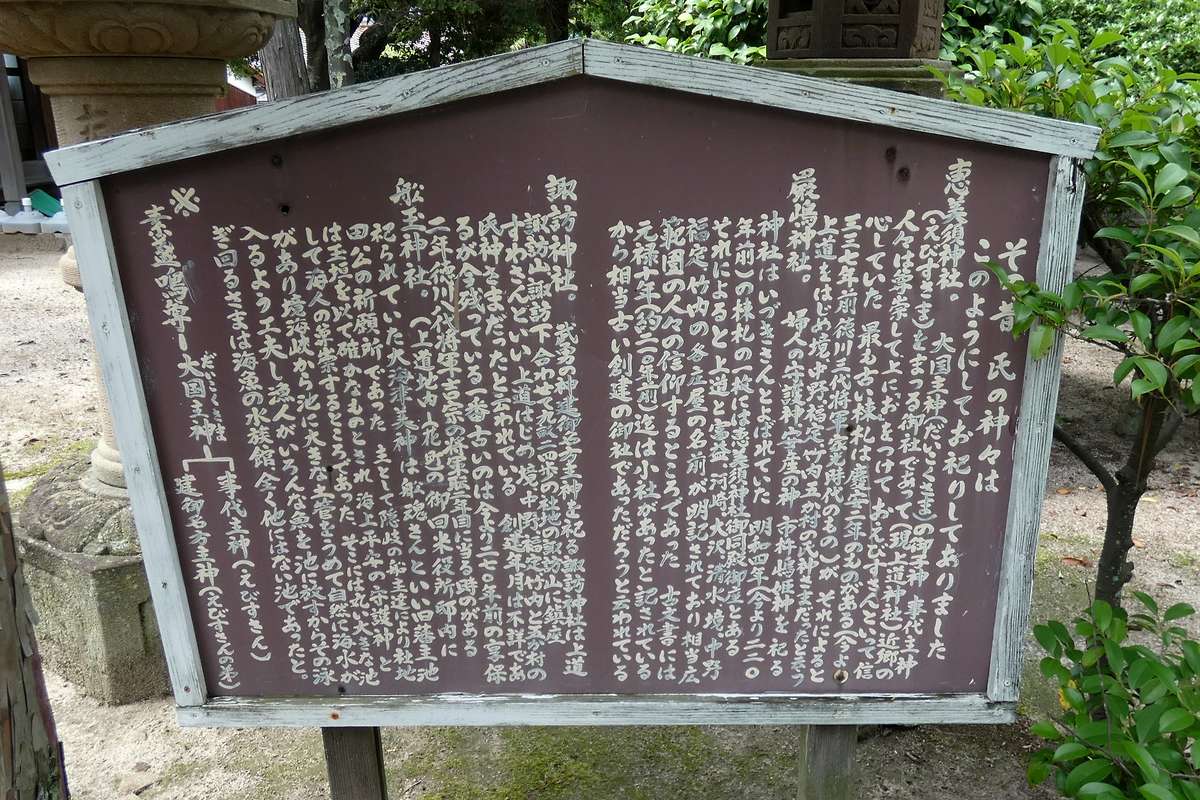 その昔 氏の神々は
このようにしてお祀りしてありました
恵美須神社。 大国主神(だいこくさま)の御子神 事代主神
(えびすさま)をまつる御社であって(現上道神社)近郷の
人々は崇崇して上におをつけて おえびすさんといって信
心していた 最も古い棟札は慶安二年のものがある(今より
三三七年前徳川三代将軍家光時代のもの)が それによると
上道をはじめ境中野福定竹内五か村の氏神さまだったそうな
厳嶋神社。 婦人の守護神(安産の神 市杵嶋姫神を祀る
神社はいつきさんとよばれていた 明和四年(今より二二〇
年前)の棟札の一枚には恵美須神社御同殿御座とある
それによると上道と 河崎 大沢 清水 境 中野
福定 竹内の各庄屋の名前が明記されており相当広
範囲の人々の信仰するところであった 古文書には
元禄十年(約二百年前)迄は小社があったと記されている
から相当古い創建の御社であただろうと云われている
諏訪神社。 武勇の神建御名方主神を祀る諏訪神社は上道
諏訪山 諏訪下合わせて九畝二四歩の社地の諏訪山に鎮座
すわさんといい上道はじめ境中野福定竹内と五か村の
氏神さまだったと云われている 創建年月は不祥であ
るが今残っている一番古いのは今より二七〇年前の享保
二年徳川八代将軍吉宗の将軍二年目に当る時のがある
船玉神社。 (上道地内)花町の御回米役所邸内に
祀られていた 大 神は船魂さんといい旧藩主池
田公の祈願所であった 主として隠岐の船主達により社地
は三 を以て確かなものとされ海上平安の守護神と
して海人の崇崇するところであった そこには北に大きな池
があり境 岐から池に大きな土管をうめて自然に海水が
入るよう工夫し魚人がいろんな魚を池に放すからその泳
ぎ回るさまは海魚の水族館全く他にはない池であったと。
※
素盞鳴尊ー大国主神 事代主神(えびすさん)
だいこくさま
建御名方主神(えびすさんの弟)